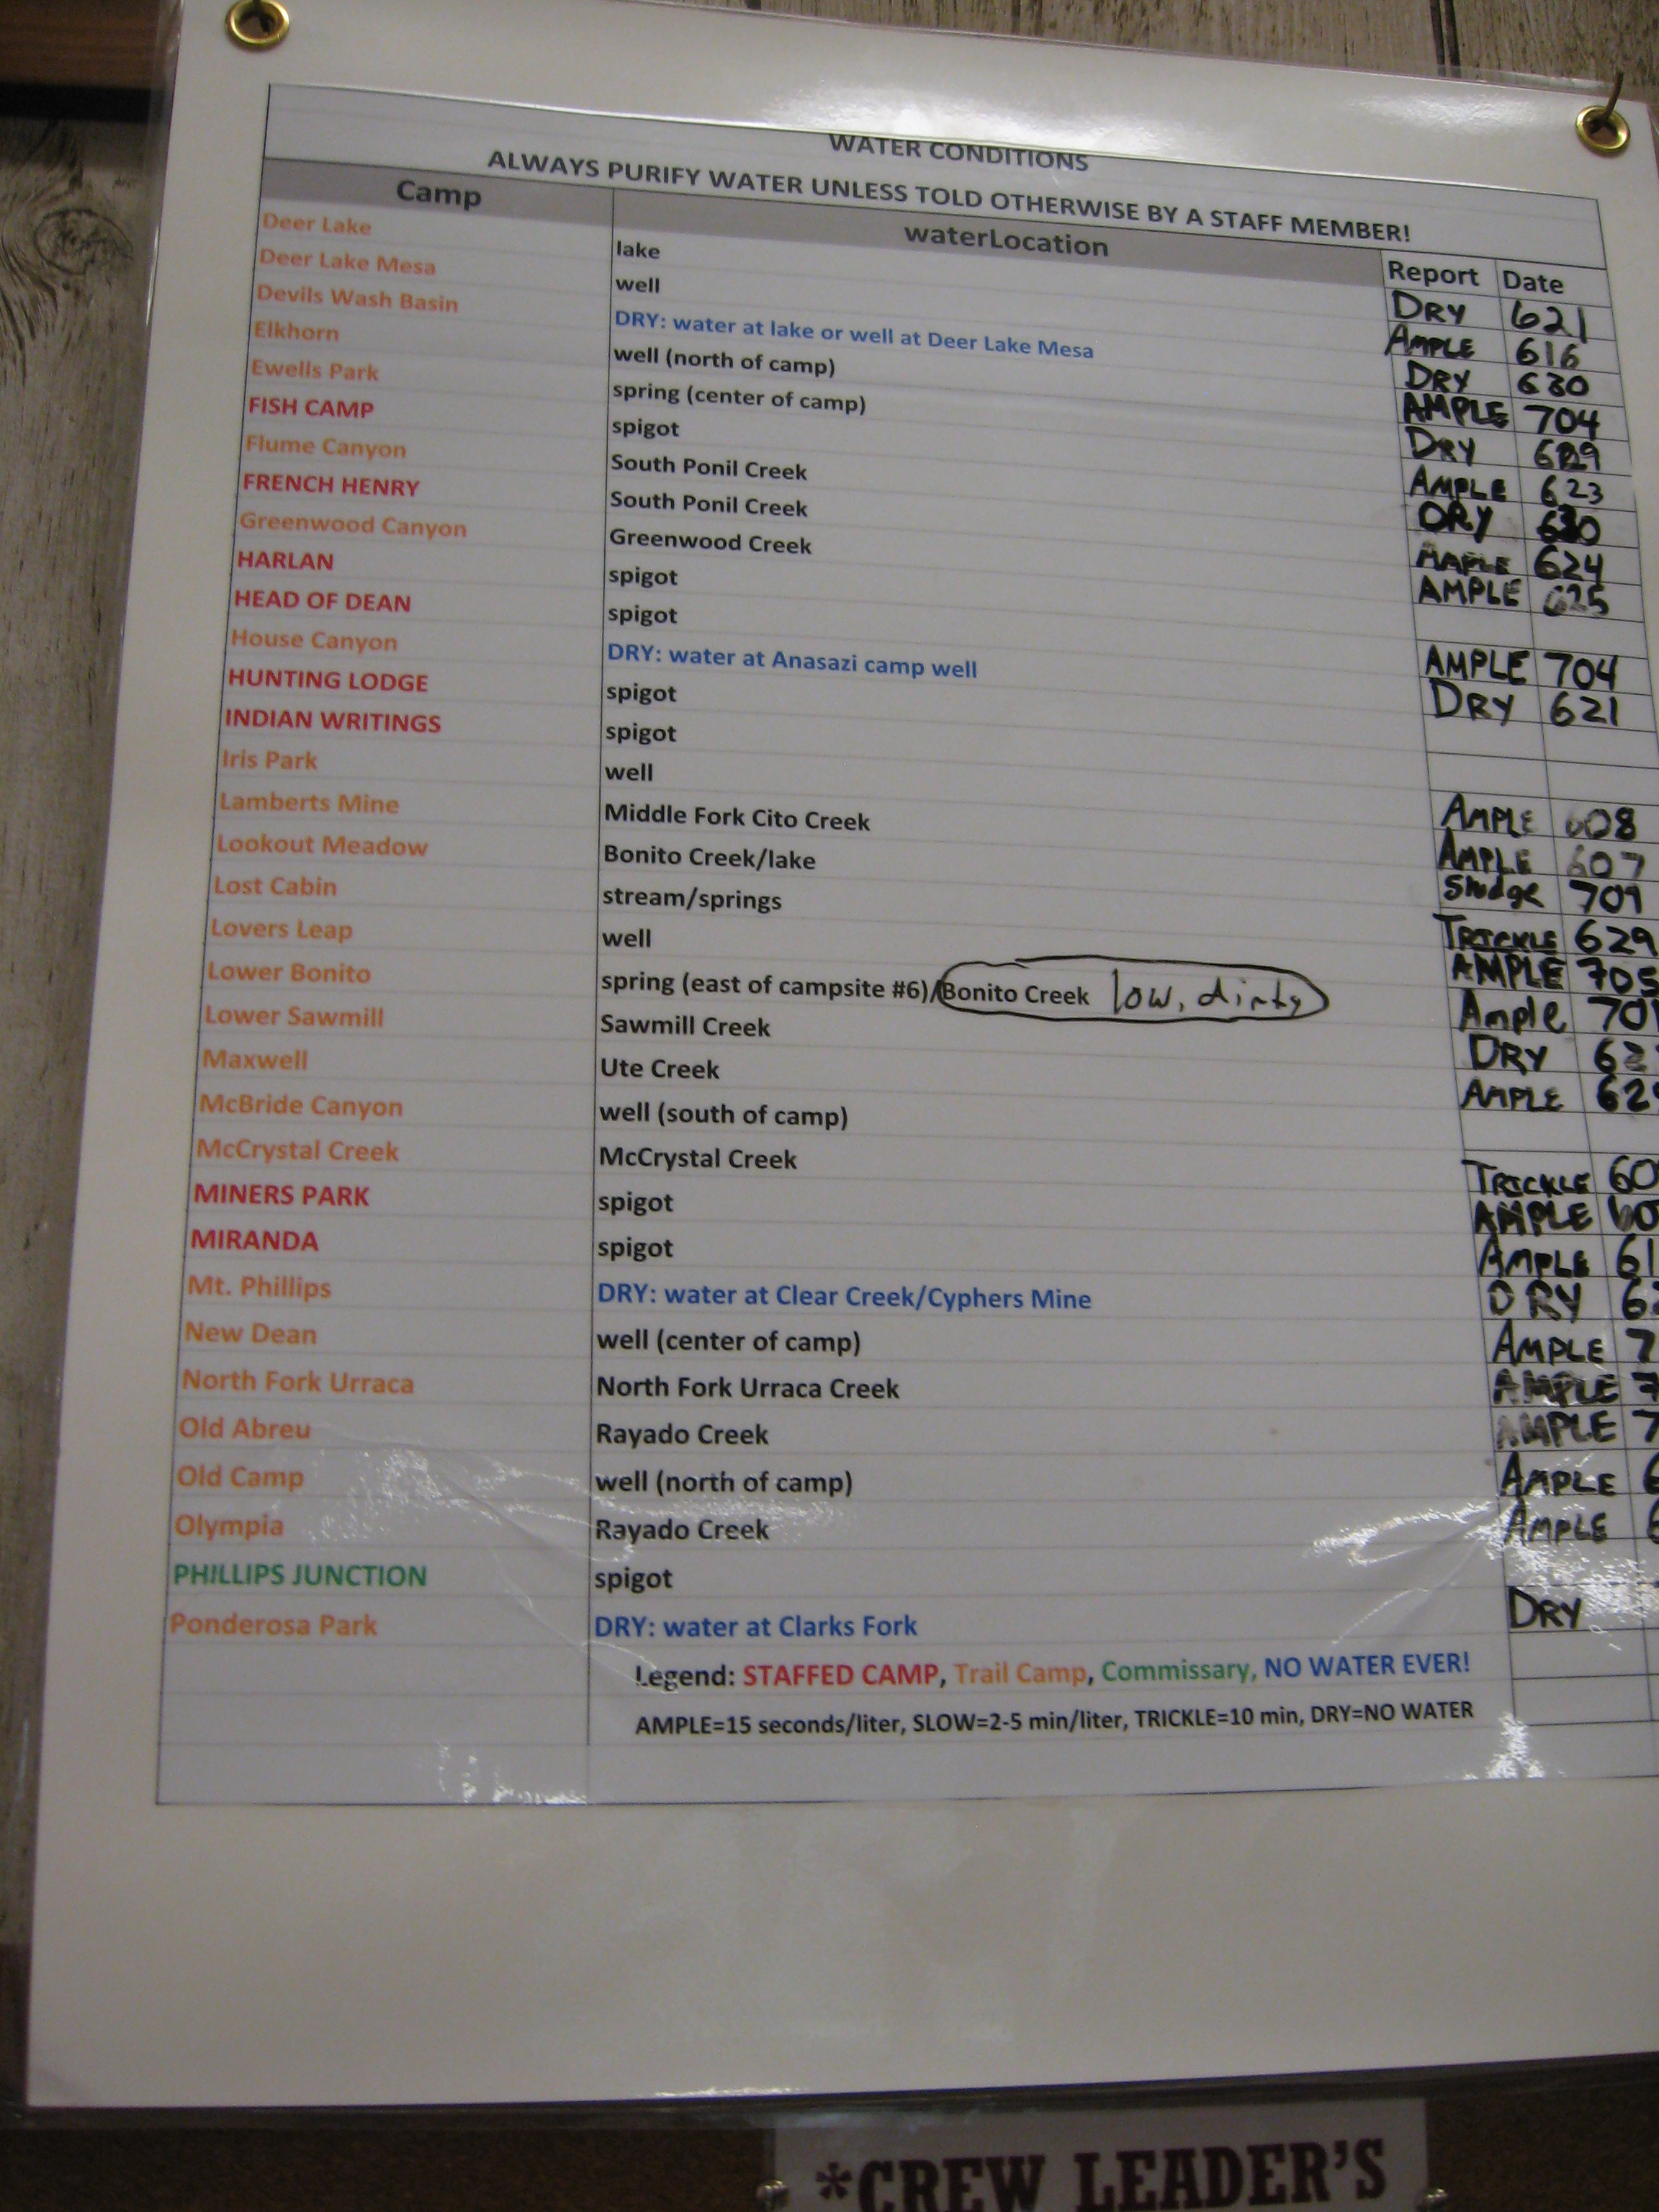 WATER CONDITIONS
ALWAYS PURIFY WATER UNLESS TOLD OTHERWISE BY A STAFF MEMBER!
Camp waterLocation Report Date
Deer Lake lake DRY 621
Deer Lake Mesa well AMPLE 616
Devils Wash Basin DRY: water at lake or well at Deer Lake Mesa DRY 630
Elkhorn well (north of camp) AMPLE 704
Ewells Park spring (center of camp) DRY 629
FISH CAMP spigot AMPLE 623
Flume Canyon South Ponil Creek DRY 630
FRENCH HENRY South Ponil Creek AMPLE 624
Greenwood Canyon Greenwood Creek AMPLE 625
HARLAN spigot
HEAD OF DEAN spigot AMPLE 704
House Canyon DRY: water at Anasazi camp well DRY 621
HUNTING LODGE spigot
INDIAN WRITINGS spigot
Iris Park well AMPLE 608
Lamberts Mine Middle Fork Cito Creek AMPLE 607
Lookout Meadow Bonito Creek/lake Sludge 701
Lost Cabin stream/springs TRICKLE 629
Lovers Leap well AMPLE 705
Lower Bonito spring (east of campsite #6)/Bonito Creek low, dirty Ample 701
Lower Sawmill Sawmill Creek DRY 62
Maxwell Ute Creek AMPLE 62
McBride Canyon well (south of camp)
McCrystal Creek McCrystal Creek TRICKLE 60
MINERS PARK spigot AMPLE 60
MIRANDA spigot AMPLE 61
Mt. Phillips DRY: water at Clear Creek/Cyphers Mine DRY 62
New Dean well (center of camp) AMPLE 7
North Fork Urraca North Fork Urraca Creek AMPLE 7
Old Abreu Rayado Creek AMPLE 7
Old Camp well (north of camp) AMPLE 6
Olympia Rayado Creek AMPLE 6
PHILLIPS JUNCTION spigot
Ponderosa Park DRY: water at Clarks Fork DRY
Legend: STAFFED CAMP, Trail Camp, Commissary, NO WATER EVER!
AMPLE=15 seconds/liter, SLOW=2-5 min/liter, TRICKLE=10 min, DRY=NO WATER
*CREW LEADER'S